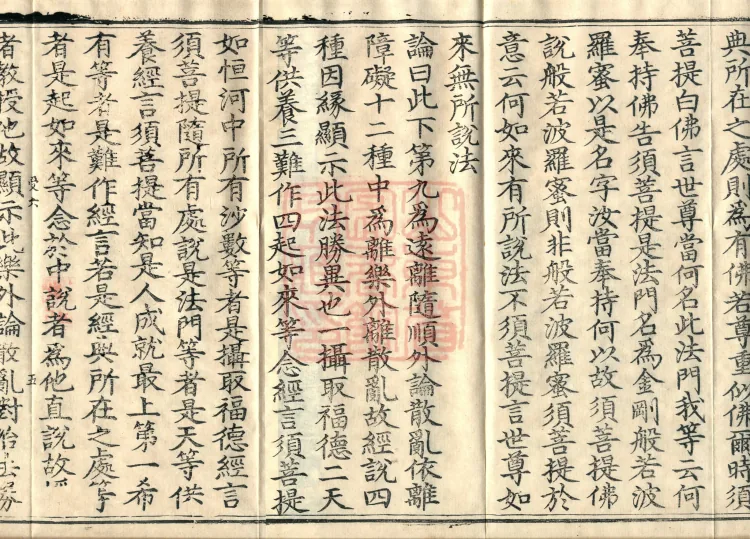 典所在之處則為有佛若尊重似佛爾時須
菩提白佛言世尊當何名此法門我等云何
奉持佛告須菩提是法門名為金剛般若波
羅蜜以是名字汝當奉持何以故須菩提佛
說般若波羅蜜則非般若波羅蜜須菩提於
意云何如來有所說法不須菩提言世尊如
來無所說法
論曰此下第九為遠離隨順外論散亂依離
障礙十二種中為離樂外離散亂故經說四
種因緣顯示此法勝異也一攝取福德二天
等供養三難作四起如來等念經言須菩提
如恒河中所有沙數等者是攝取福德經言
須菩提隨所有處說是法門等者是天等供
養經言須菩提當知是人成就最上第一希
有等者是難作經言若是經典所在之處等
者是起如來等念於中說者為他直說故
五
者教授他故顯示此樂外論散亂對治